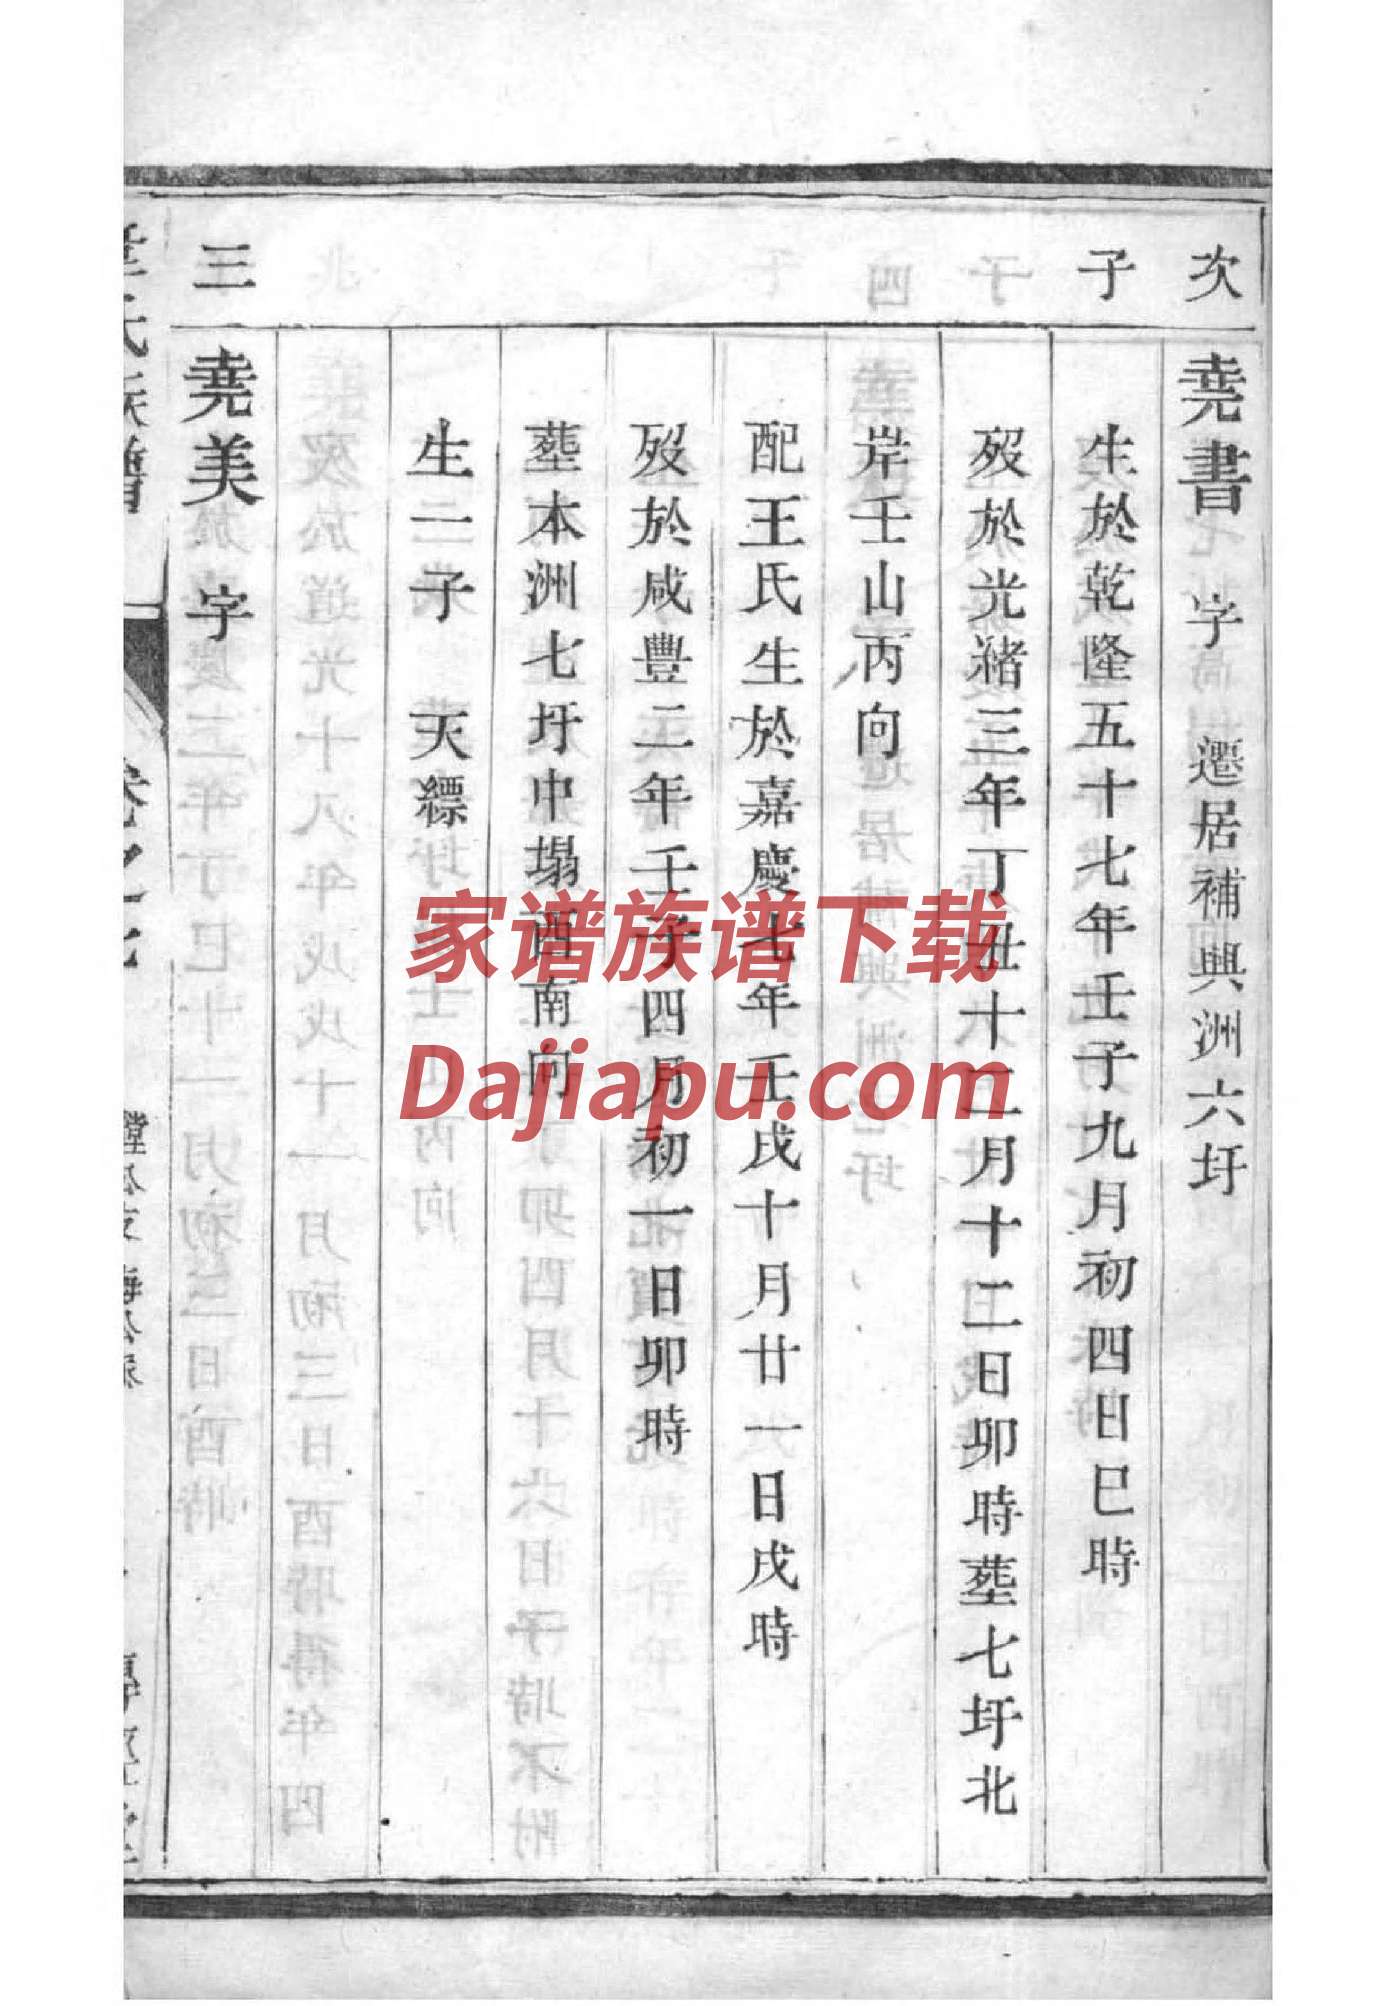 次
堯書 字 遷居補興洲六圩
子
生於乾隆五十七年壬子九月初四日巳時
歿於光緒三年丁丑十二月十二日卯時塟七圩北
岸壬山丙向
配王氏生於嘉慶七年壬戌十月廿一日戌時
歿於咸豐二年壬子四月初一日卯時
塟本洲七圩中塌酉南向
生二子 天縹
三
堯美 字
氏族譜
卷之七
家谱族谱下载
Dajiapu.com